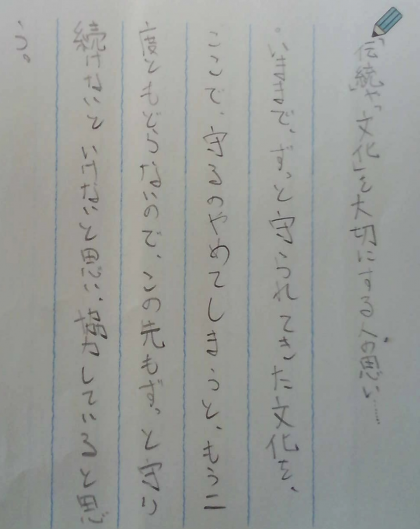 「伝統」や「文化」を大切にする人の思い…
いままで、ずっと守られてきた文化を、
ここで、守るのやめてしまうと、もう二
度ともどらないので、この先もずっと守り
続けないといけないと思い、努力していると思
う。